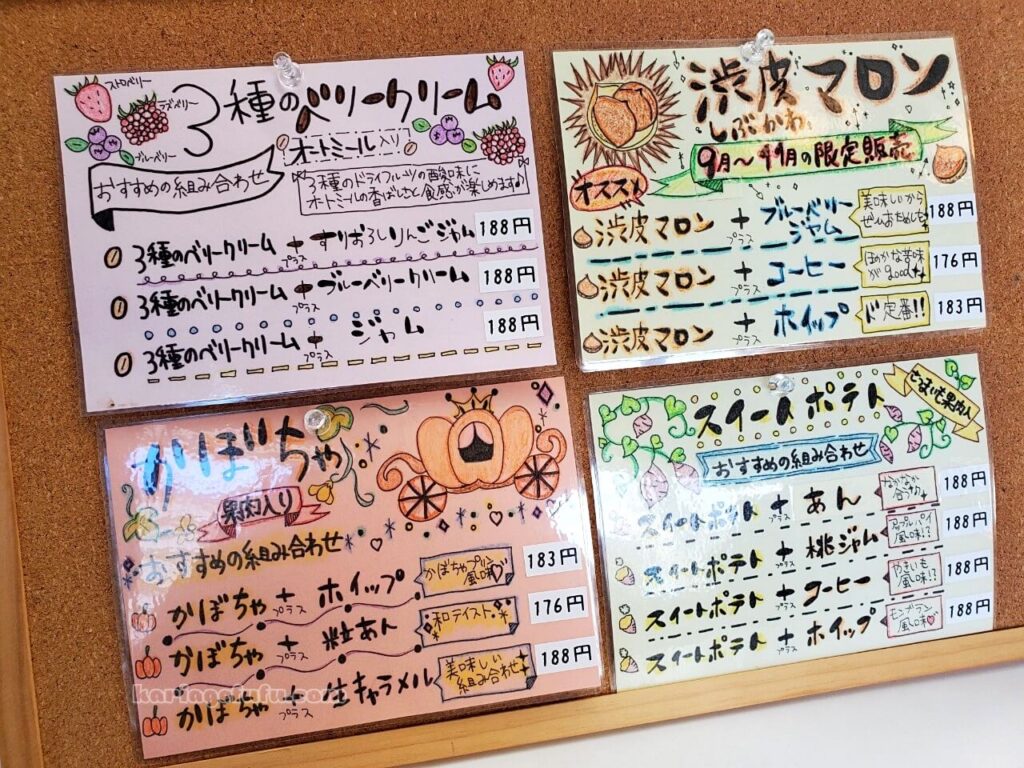 ストロベリー
ラズベリー
ブルーベリー
3種のベリークリーム
オートミール入り
おすすめの組み合わせ
3種のドライフルーツの酸味に
オートミールの香ばしさと食感が楽しめます♪
3種のベリークリーム+プラス すりおろしりんごジャム 188円
3種のベリークリーム+プラス ブルーベリークリーム 188円
3種のベリークリーム+プラス ジャム 188円
渋皮マロン
しぶかわ
9月～11月の限定販売
オススメ
渋皮マロン+プラス ブルーベリージャム 美味しいからぜひおためしを 188円
渋皮マロン+プラス コーヒー ほのかな苦味がgood 176円
渋皮マロン+プラス ホイップ ド定番!! 183円
かぼちゃ
果肉入り
おすすめの組み合わせ
かぼちゃ+プラス ホイップ かぼちゃプリン風味♡ 183円
かぼちゃ+プラス 粒あん 和テイスト 176円
かぼちゃ+プラス 生キャラメル 美味しい組み合わせ 188円
スイートポテト
さつまいも果肉入
おすすめの組み合わせ
スイートポテト+プラス あん なかなか合うかも 188円
スイートポテト+プラス 桃ジャム アップルパイ風味!? 188円
スイートポテト+プラス コーヒー やきいも風味!? 188円
スイートポテト+プラス ホイップ モンブラン風味♡ 188円